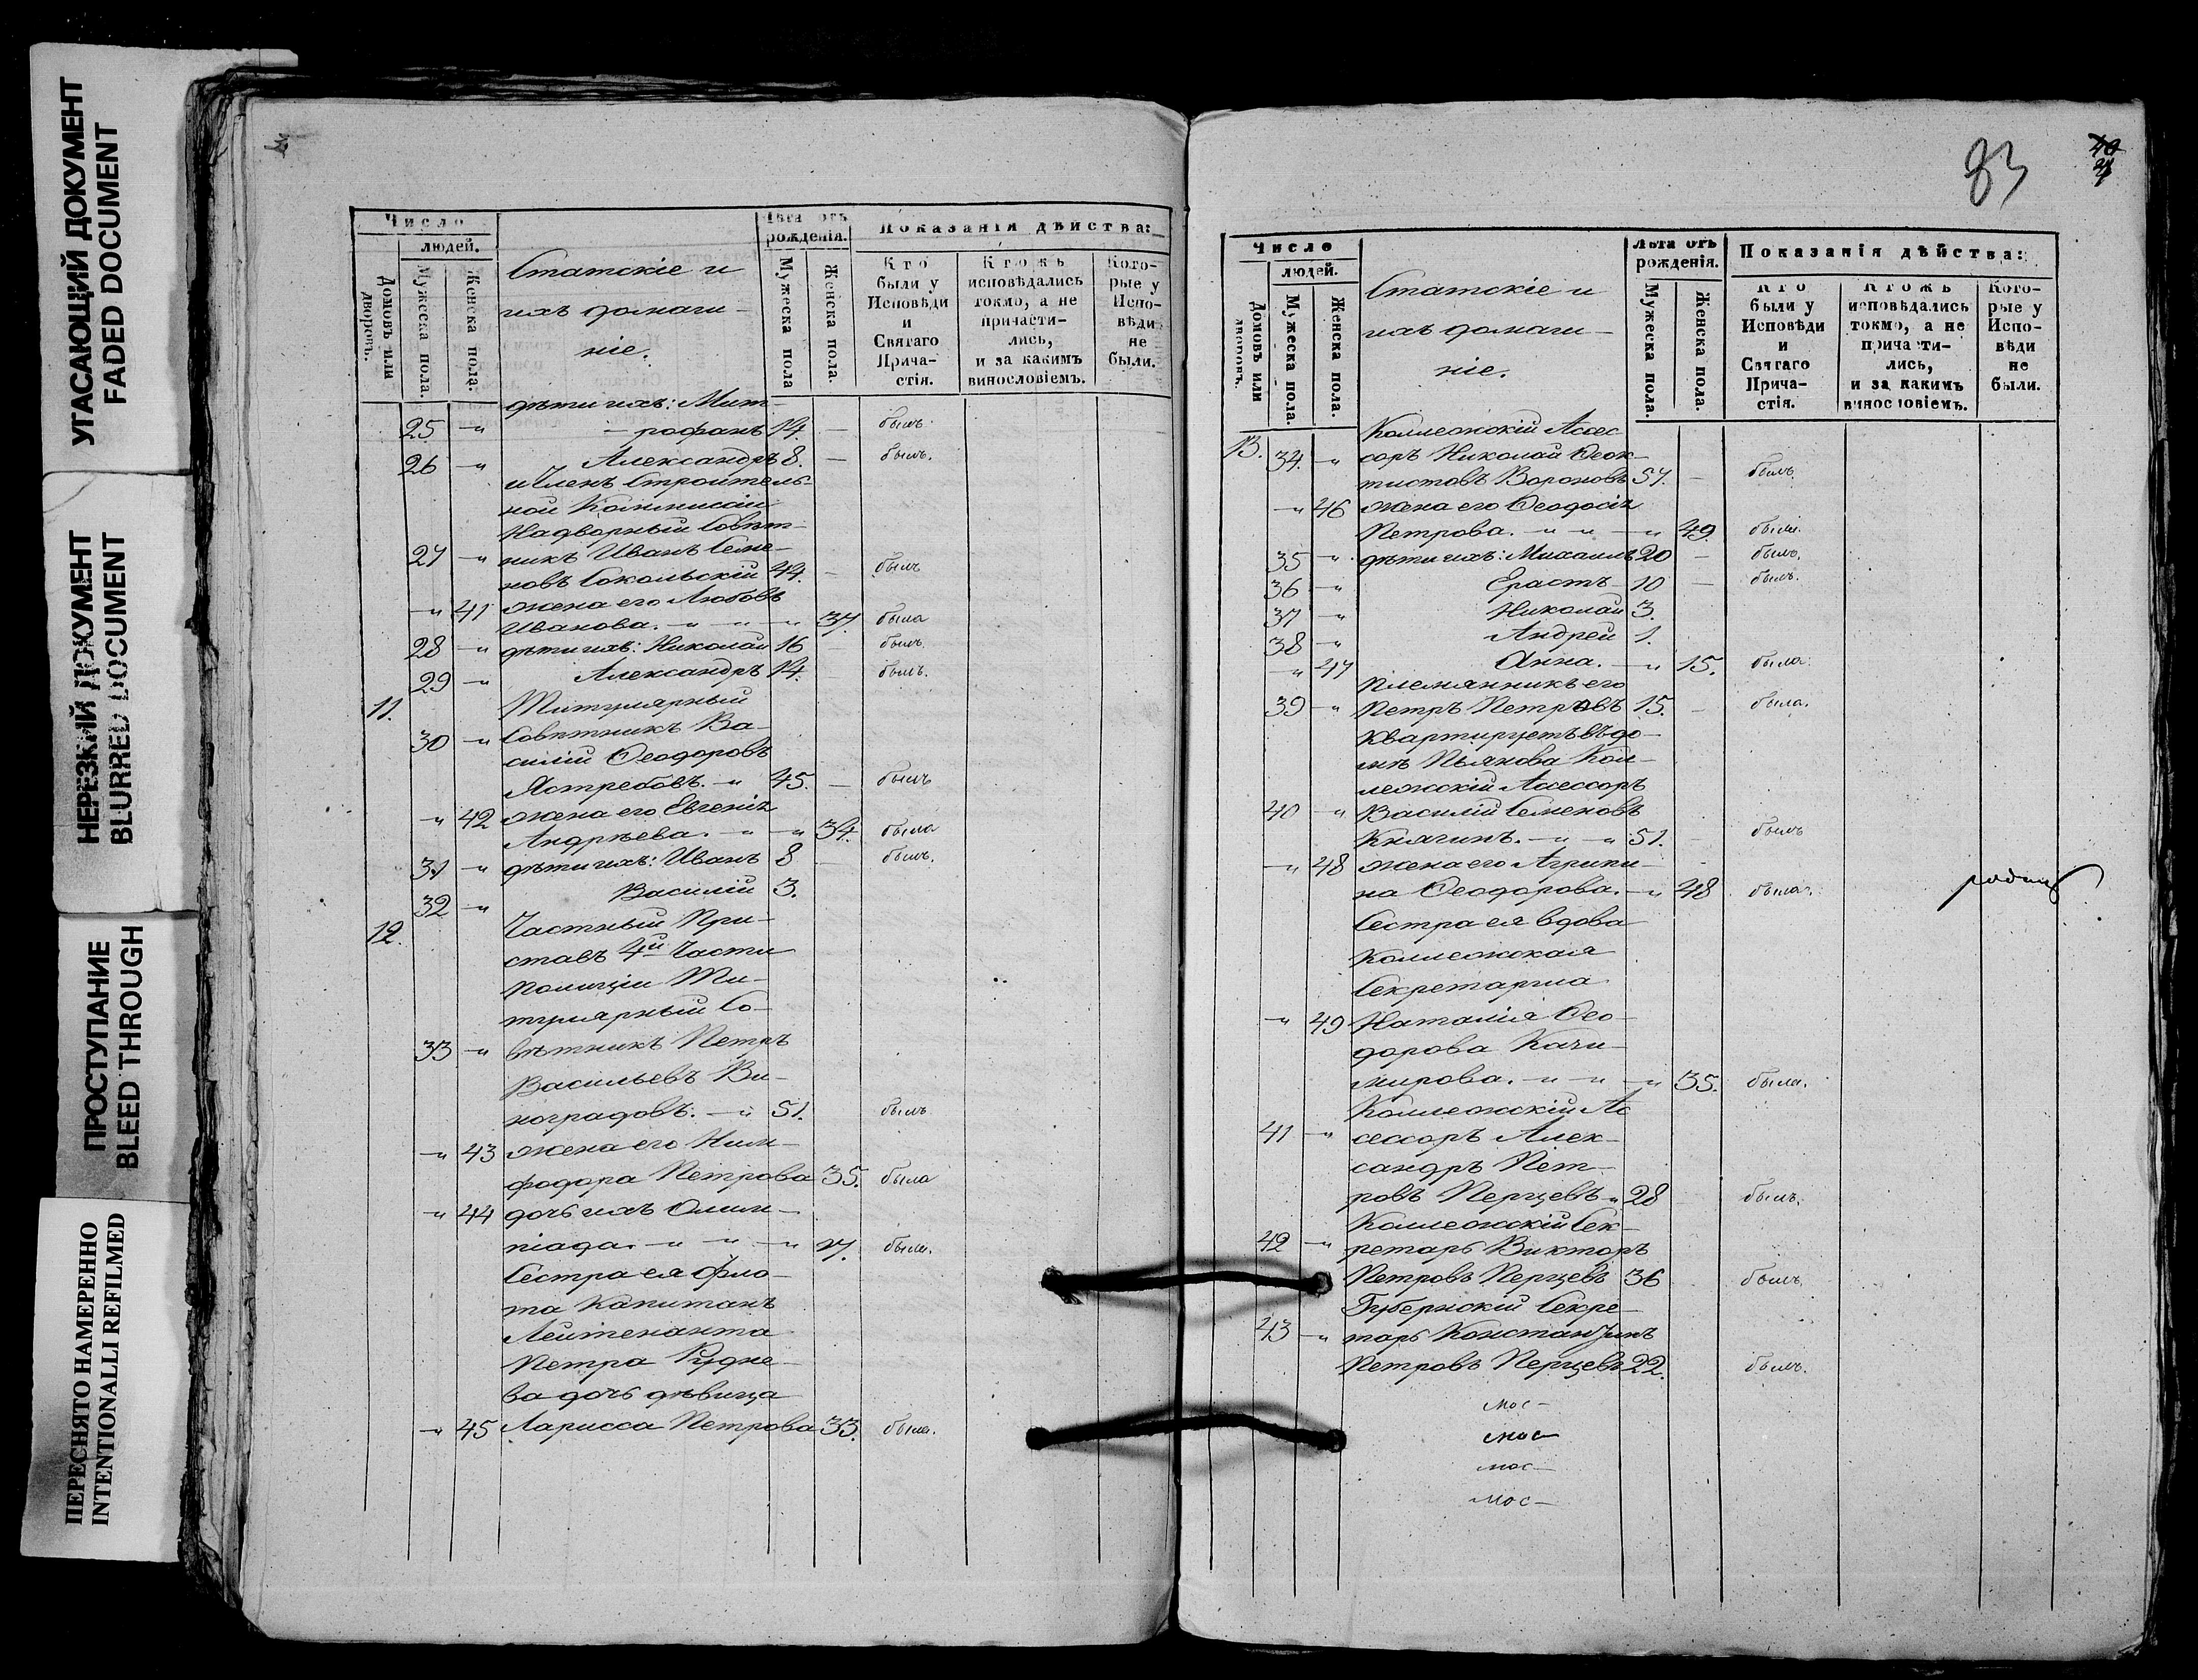 УГАСАЮЩИЙ ДОКУМЕНТ
FADED DOCUMENT
НЕРЕЗКИЙ ДОКУМЕНТ
BLURRED DOCUMENT
ПРОСТУПАНИЕ
BLEED THROUGH
ПЕРЕСНЯТО НАМЕРЕННО
INTENTIONALLI REFILMED
Число
людей.
Домовъ или дворовъ.
Мужеска пола.
Женска пола.
Статскіе и
ихъ домаш-
ніе.
Лѣта отъ
рожденія.
Мужеска пола
Женска пола.
Показанія дѣйства:
Кто
были у
Исповѣди
и
Святаго
Прича-
стія.
Ктожъ
исповѣдались
токмо, а не
причасти-
лись,
и за какимъ
винословіемъ.
Кото-
рые у
Испо-
вѣди
не
были.
дѣти ихъ: Мит-
25 - " - рофанъ 14. - былъ
26 - " Александръ 8. - былъ.
Членъ Строитель-
ной Коммисіи
Надворный Совѣт-
27 - " никъ Иванъ Семе-
новъ Сокольскій 44. - былъ
- " 41 жена его Любовь
Иванова. - " - " - " 37. была
28 - " дѣти ихъ: Николай 16 былъ.
29 - " Александръ 14. былъ.
11. Титулярный
30 - " Совѣтникъ Ва-
силій Ѳеодоровъ
Ястребовъ. - " 45. - былъ
- " 42 жена его Евгенія
Андрѣева. - " - " 34. была
31 - " дѣти ихъ: Иванъ 8 - былъ.
32 - " Василій 3.
12. Частный При-
ставъ 4й Части
Полиціи Ти-
тулярный Со-
33 - " вѣтникъ Петръ
Васильевъ Ви-
ноградовъ. - " 51. былъ
- " 43 жена его Ним-
фодора Петрова 35. была
- " 44 дочь ихъ Олим-
піада. - " - " - " 17. была.
Сестра ея Фло-
та Капитанъ
Лейтенанта
Петра Рудне-
ва дочь дѣвица
- " 45 Ларисса Петрова 33. была.
83
Число
людей.
Домовъ или дворовъ.
Мужеска пола.
Женска пола.
Статскіе и
ихъ домаш-
ніе.
Лѣта отъ
рожденія.
Мужеска пола.
Женска пола.
Показанія дѣйства:
Кто
были у
Исповѣди
и
Святаго
Прича-
стія.
Ктожъ
исповѣдались
токмо, а не
причасти-
лись,
и за какимъ
винословіемъ.
Кото-
рые у
Испо-
вѣди
не
были.
Коллежскій Асес-
13. 34. - " соръ Николай Ѳеок-
тистовъ Вороновъ 57. - былъ
- " 46 жена его Ѳеодосія
Петрова. - " - " - " 49 была.
35 - " дѣти ихъ: Михаилъ 20 - былъ.
36 - " Ерастъ 10 - былъ.
37 - " Николай 3.
38 - " Андрей 1.
- " 47 Анна. - " 15. была.
племянникъ его
39 - " Петръ Петровъ 15. - была.
Квартируетъ въ до-
мѣ Пьянова Кол-
лежскій Асессоръ
40 - " Василій Семеновъ
Княгинъ. - " - " 51. - былъ
- " 48 жена его Агрипи-
на Ѳеодорова. - " 48 была.
Сестра ея вдова
Коллежская
Секретарша
- " 49 Наталія Ѳео-
дорова Качи-
мирова. - " - " - " 35. была.
Коллежскій Ас
41 - " сессоръ Алек-
сандръ Пет-
ровъ Перцевъ " 28 былъ.
Коллежскій Сек-
42 - " ретарь Викторъ
Петровъ Перцевъ 36 былъ.
Губернскій Секре-
43 - " тарь Константинъ
Петровъ Перцевъ 22. былъ.